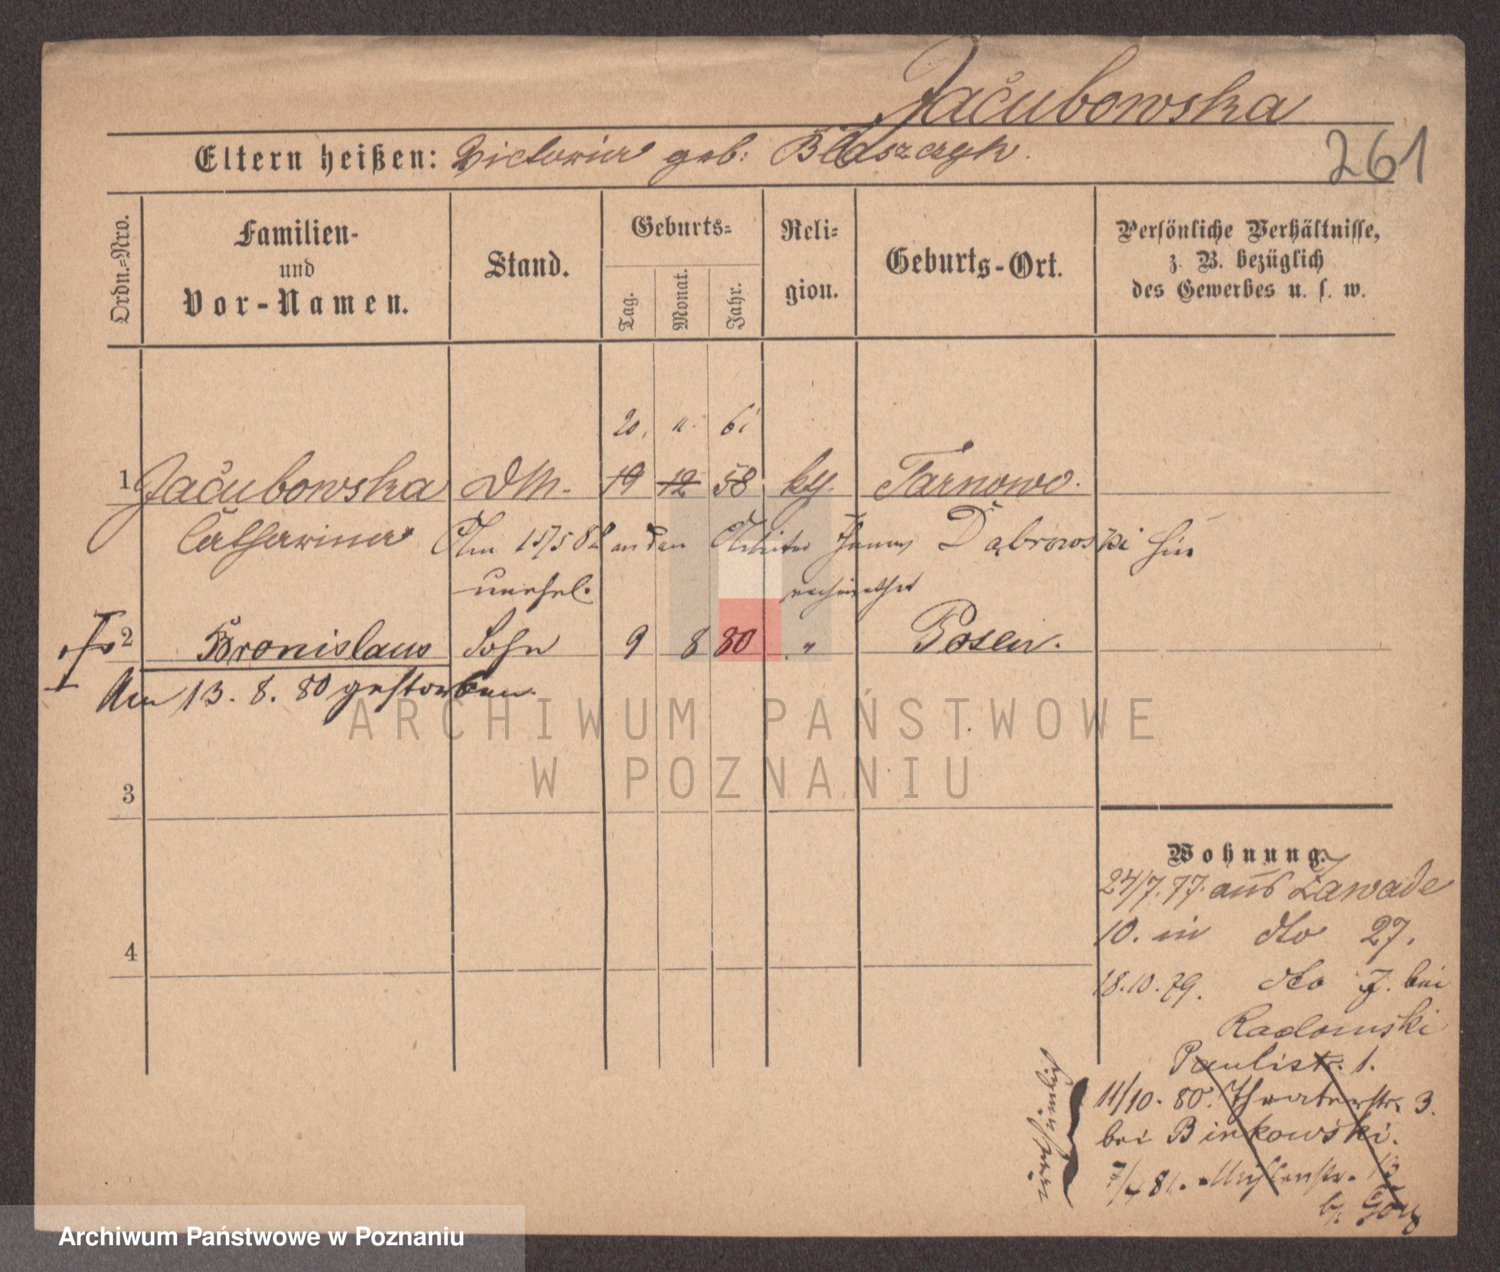 Jacubowska
Eltern heißen: Victoria geb: Blaszczyk.
261
Ordn.=Nro.
Familien-
und
Vor-Namen.
Stand.
Geburts=
Tag.
Monat.
Jahr.
Reli=
gion.
Geburts-Ort.
Persönliche Verhältnisse,
z. B. bezüglich
des Gewerbes u. s. w.
20. 11. 61
1 Jacubowska DM. 19 12 58 kth. Tarnowo.
Catharina Am 15/5 82 an den Arbeiter Thomas Dąbrowski hier
unehel. verheirathet
2 Bronislaus Sohn 9 8 80 " Posen.
Am 13. 8. 80 gestorben.
3
4
Wohnung.
24/7. 77. aus Zawade
10. in dto 27.
18.10.79. dto 7. bei
Radomski
Paulistr. 1.
11/10. 80. Theaterstr. 3.
bei Binkowski.
7/4 81. Mühlenstr. 13
b/
ARCHIWUM PAŃSTWOWE
W POZNANIU
Archiwum Państwowe w Poznaniu